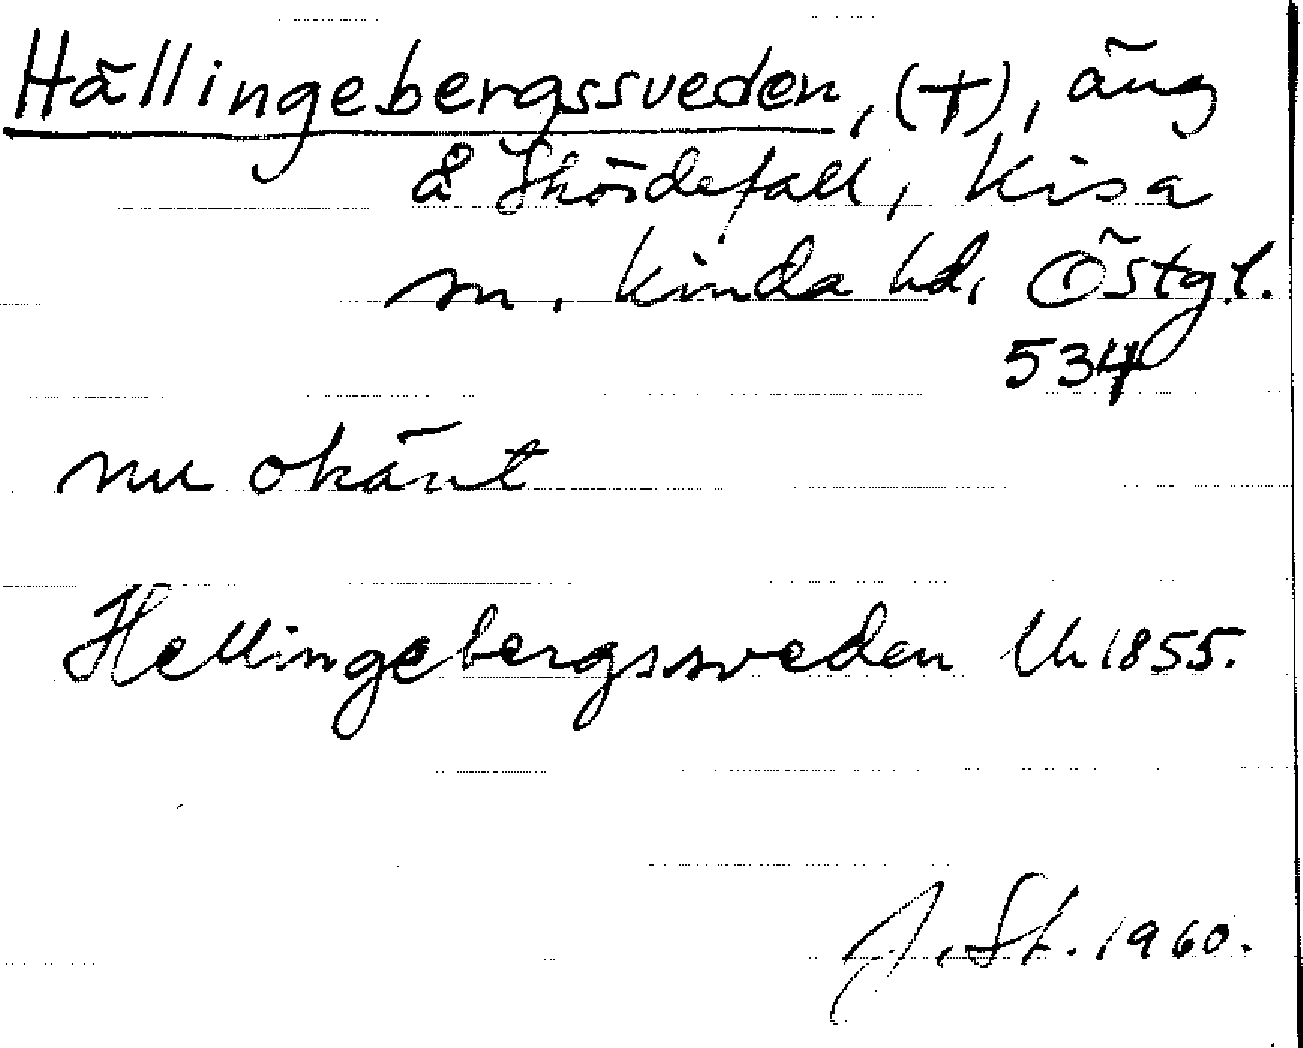 Hällingebergssveden, (+), äng
å Skördefall, Kisa
sn. Kinda hd, Östgl.
534
nu okänt
Hellingebergssweden Uh 1855.
J. St. 1960.